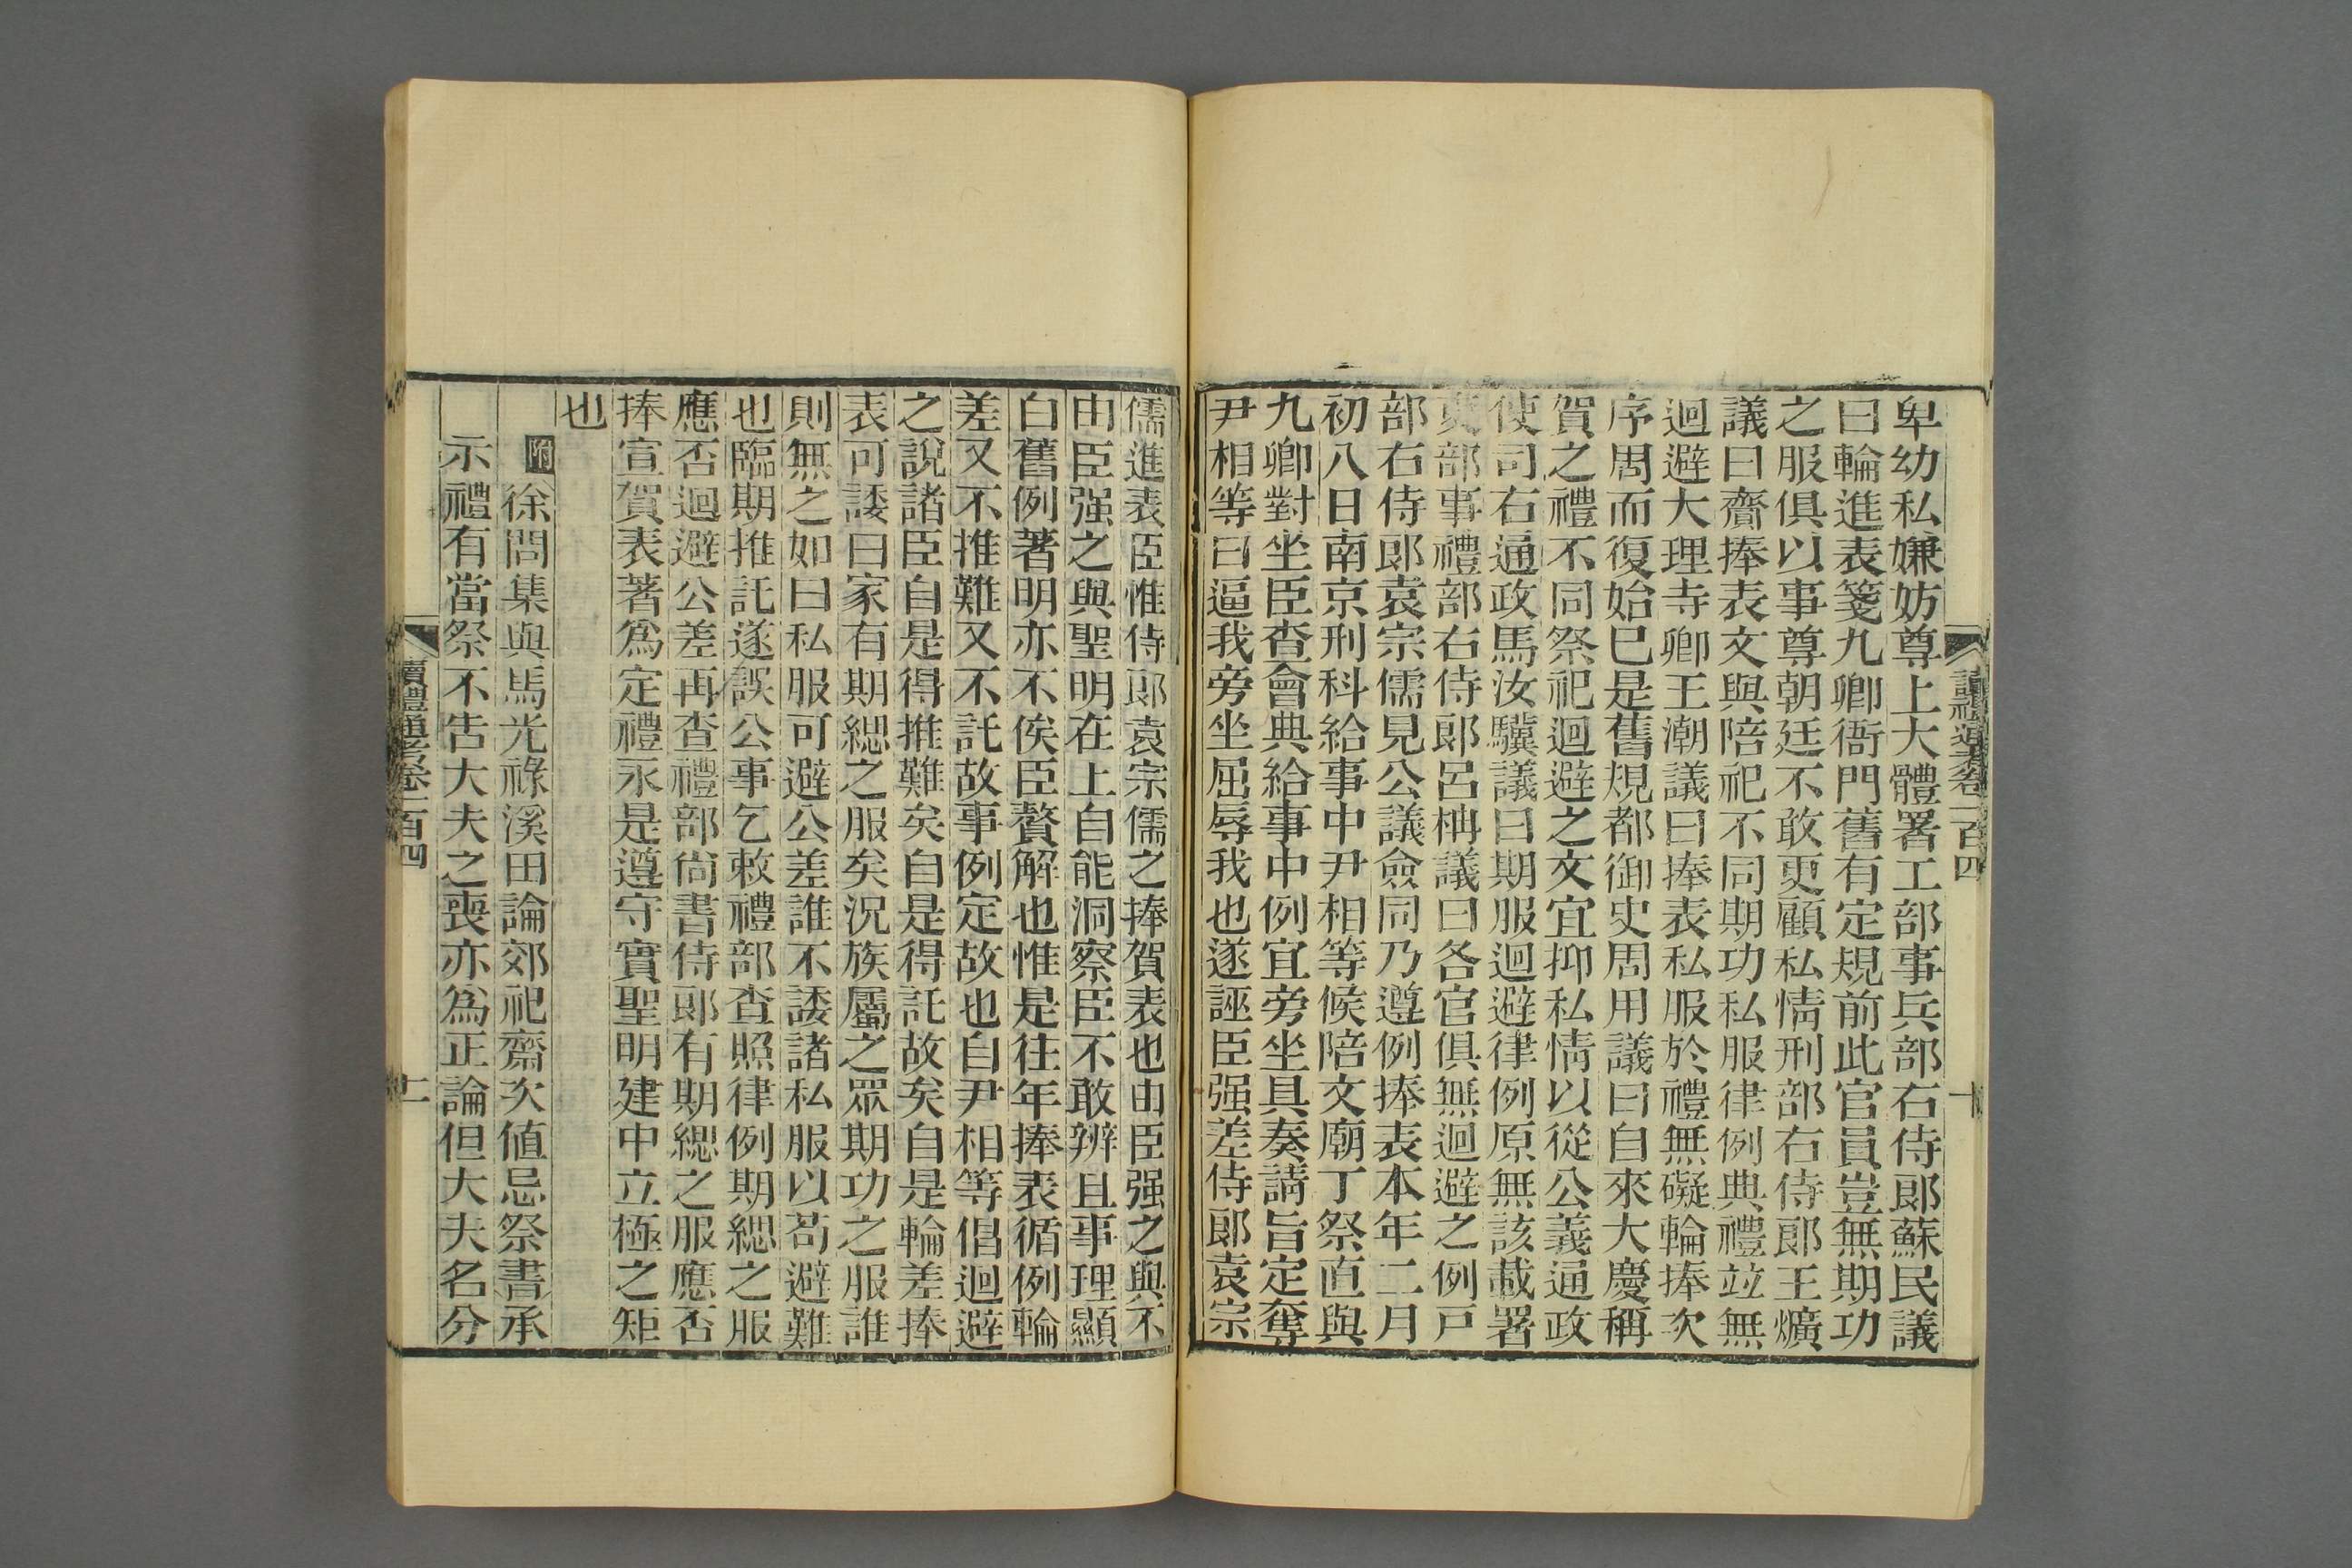 卑幼私嫌妨尊上大體署工部事兵部右侍郎蘇民議
曰輪進表箋九卿衙門舊有定規前此官員豈無期功
之服俱以事尊朝廷不敢更顧私情刑部右侍郎王爌
議曰齎捧表文與陪祀不同期功私服律例典禮竝無
迴避大理寺卿王潮議曰捧表私服於禮無礙輪捧次
序周而復始巳是舊規都御史周用議曰自來大慶稱
賀之禮不同祭祀迴避之文宜抑私情以從公義通政
使司右通政馬汝驥議曰期服迴避律例原無該載署
吏部事禮部右侍郎呂柟議曰各官俱無迴避之例戸
部右侍郎袁宗儒見公議僉同乃遵例捧表本年二月
初八日南京刑科給事中尹相等候陪文廟丁祭直與
九卿對坐臣查會典給事中例宜旁坐具奏請旨定奪
尹相等曰逼我旁坐屈辱我也遂誣臣强差侍郎袁宗
讀禮通考卷一百四
十
儒進表臣惟侍郎袁宗儒之捧賀表也由臣强之與不
由臣强之與聖明在上自能洞察臣不敢辨且事理顯
白舊例著明亦不俟臣贅解也惟是往年捧表循例輪
差又不推難又不託故事例定故也自尹相等倡迴避
之說諸臣自是得推難矣自是得託故矣自是輪差捧
表可諉曰家有期緦之服矣況族屬之眾期功之服誰
則無之如曰私服可避公差誰不諉諸私服以苟避難
也臨期推託遂誤公事乞敕禮部查照律例期緦之服
應否迴避公差再查禮部尚書侍郎有期緦之服應否
捧宣賀表著為定禮永是遵守實聖明建中立極之矩
也
附
徐問集與馬光祿溪田論郊祀齋次值忌祭書承
示禮有當祭不告大夫之喪亦為正論但大夫名分
讀禮通考卷一百四
十一